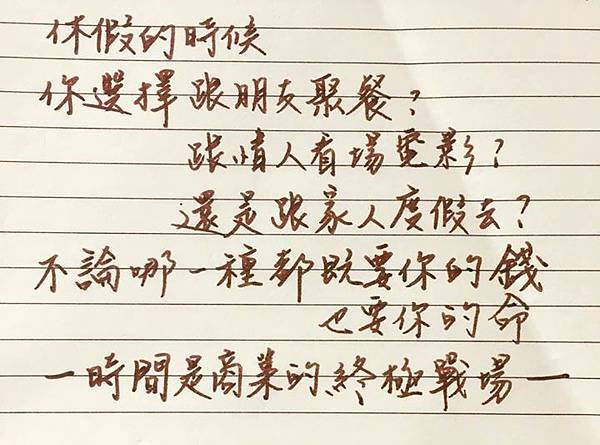 休假的時候
你選擇跟朋友聚餐?
跟情人看場電影?
還是跟家人度假去?
不論哪一種都既要你的錢
也要你的命
一時間是商業的終極戰場一